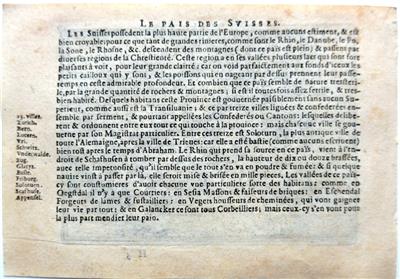 LE PAIS DES SVISSES.
LEs Suisses possedent la plus haute partie de l'Europe, comme aucuns estiment, & est
bien croyable; pour ce que tant de grandes rivieres, comme sont le Rhin, le Danube, le Po,
la Sone, le Rhosne, &c. descendent des montagnes (dont ce païs est plein) & passent par
diverses regions de la Chrestienté. Ceste region a en ses vallées plusieurs lacs qui sont fort
plaisants à voir, pour leur grande clairté; car on void paisiblement aux fonds d'iceux les
petits cailloux qui y sont, & les poissons qui en nageant par dessus prennent leur passe-
temps en ceste admirable profondeur. Et combien que ce païs semble de nature steril-
le, par la grande quantité de rochers & montagnes; si est il toutesfois assez fertile, & tres-
bien habité. Desquels habitans ceste Province est gouvernée paisiblement sans aucun Su-
perieur, comme aussi est la Transilvanie; & ce par treize villes liguées & confederées en-
semble par serment, & pourtant appellées les Confederés ou Cantons: lesquelles de libe-
rent & ordonnent entre eux tout ce qui touche à la province: mais chacune ville se gou-
verne par son Magistrat particulier. Entre ces treize est Solourn, la plus antique ville de
toute l'Alemaigne, apres la ville de Treves: car elle a esté bastie (comme aucuns escrivent)
bien tost apres le temps d'Abraham. Le Rhin qui prend sa source en ce païs, vient à l'en-
droit de Schafhusen à tomber par dessus des rochers, la hauteur de dix ou douze brassées,
avec telle impetuosité, qu'il semble que le tout s'en va en poudre & fumée; & si quelque
navire vinst à passer par là, elle seroit mise & brisée en mille pieces. Les vallées de ce païs-
cy sont coustumieres d'avoir chacune son particuliere sorte des habitans: comme en
Ongstdal il n'y a que Couriers: en Sesia Massons & faiseurs de briques: en Eschendal
Forgeurs de lames & fustailliers: en Vegets housseurs de cheminées, qui vont gaigner
leur vie par tout: & en Galancker ce sont tous Corbeilliers; mais ceux-cy s'en vont pour
la plus part mendier leur païn.
13. villes.
Zurich.
Bern.
Lucern.
Vri.
Schwitz.
Vnderwalde.
Zug.
Glarys.
Basle.
Friburg.
Solourn.
Schafhuse.
Appensel.